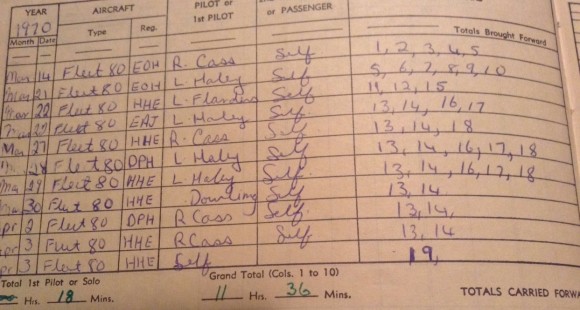 YEAR AIRCRAFT PILOT or or PASSENGER
1970 1st PILOT
Month Date Type Reg. Totals Brought Forward
— — — — — —
Mar 14 Fleet 80 EOH R. Cass Self 1, 2, 3, 4, 5
Mar 21 Fleet 80 EOH L. Haley Self 5, 6, 7, 8, 9, 10
Mar 22 Fleet 80 HHE L. Flanders Self 11, 12, 15
Mar 22 Fleet 80 EAJ L. Haley Self 13, 14, 16, 17
Mar 27 Fleet 80 HHE R. Cass Self 13, 14, 18
28 Fleet 80 DPH L Haley Self 13, 14, 16, 17, 18
Mar 29 Fleet 80 HHE L Haley Self 13, 14, 16, 17, 18
30 Fleet 80 HHE Dowling Self 13, 14
Apr 2 Fleet 80 DPH R Cass Self 13, 14,
Apr 3 Fleet 80 HHE R Cass Self 13, 14
Apr 3 Fleet 80 HHE Self 19,
Total 1st Pilot or Solo Grand Total (Cols. 1 to 10)
Hrs. 18 Mins. 11 Hrs. 36 Mins. TOTALS CARRIED FORWA